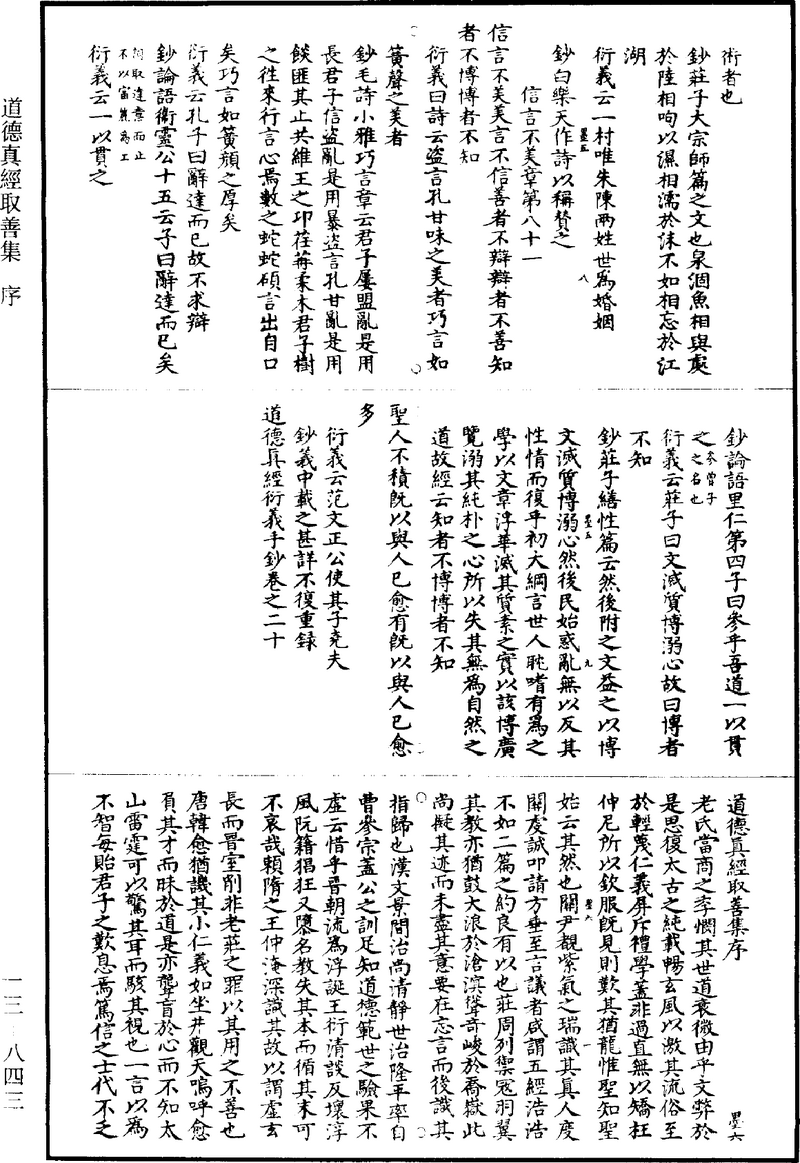 術者也
鈔莊子大宗師篇之文也泉涸魚相與處
於陸相呴以濕相濡於沫不如相忘於江
湖
衍義云一村唯朱陳兩姓世為婚姻
鈔白樂天作詩以稱贊之
墨五
八
信言不美章第八十一
信言不美美言不信善者不辯辯者不善知
者不博博者不知
衍義曰詩云盜言孔甘味之美者巧言如
簧聲之美者
鈔毛詩小雅巧言章云君子屢盟亂是用
長君子信盜亂是用暴盜言孔甘亂是用
餤匪其止共維王之邛荏苒柔木君子樹
之往來行言心焉數之蛇蛇碩言出自口
矣巧言如簧顏之厚矣
衍義云孔子曰辭達而已故不求辯
鈔論語衛靈公十五云子曰辭達而已矣
詞取達意而止
不以富麗為工
衍義云一以貫之
鈔論語里仁第四子曰參乎吾道一以貫
之參曾子
之名也
衍義云莊子曰文滅質博溺心故曰博者
不知
鈔莊子繕性篇云然後附之文益之以博
墨五
九
文滅質博溺心然後民始惑亂無以反其
性情而復乎初大綱言世人耽嗜有為之
學以文章浮華滅其質素之實以該博廣
覽溺其純朴之心所以失其無為自然之
道故經云知者不博博者不知
聖人不積既以與人己愈有既以與人己愈
多
衍義云范文正公使其子堯夫
鈔義中載之甚詳不復重錄
道德真經衍義手鈔卷之二十
道德真經取善集序
墨六
老氏當商之季憫其世道衰微由乎文弊於
是思復太古之純載暢玄風以激其流俗至
於輕蔑仁義屏斥禮學蓋非過直無以矯枉
仲尼所以欽服既見則歎其猶龍惟聖知聖
墨六
一
始云其然也關尹覩紫氣之瑞識其真人度
關虔誠叩請方垂至言議者咸謂五經浩浩
不如二篇之約良有以也莊周列禦寇羽翼
其教亦猶鼓大浪於滄溟聳奇峻於喬嶽此
尚擬其迹而未盡其意要在忘言而後識其
指歸也漢文景間治尚清靜世治隆平率自
曹參宗蓋公之訓足知道德範世之驗果不
虛云惜乎晉朝流為浮誕王衍清談反壞淳
風阮籍猖狂又隳名教失其本而循其末可
不哀哉賴隋之王仲淹深識其故以謂虛玄
長而晉室削非老莊之罪以其用之不善也
唐韓愈猶譏其小仁義如坐井觀天嗚呼愈
負其才而昧於道是亦聾盲於心而不知太
山雷霆可以驚其耳而駭其視也一言以為
不智每貽君子之歎息焉篤信之士代不乏
道德真經取善集 序
一三 八四三